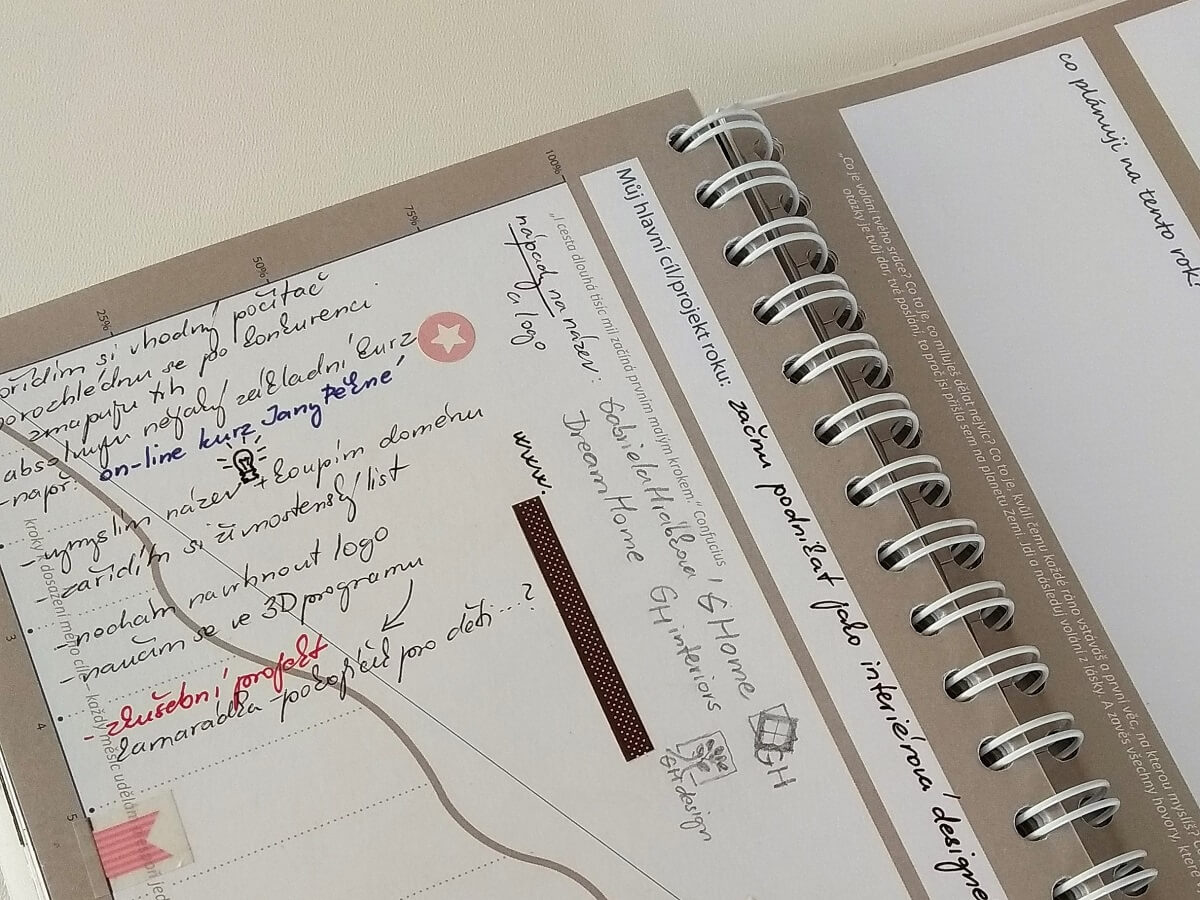 co plánuji na tento rok?
„Co je volání tvého srdce? Co to je, co miluješ dělat nejvíc? Co to je, kvůli čemu každé ráno vstáváš a první věc, na kterou myslíš?
otázky je tvůj dar, tvé poslání, to proč jsi přišla sem na planetu Zemi. Jdi a následuj volání z lásky. A zavěs všechny hovory, které
Můj hlavní cíl/projekt roku: začnu podnikat jako interiérová designé
„I cesta dlouhá tisíc mil začíná prvním malým krokem.“ Confucius
nápady na název:
a logo
Gabriela Hrabkova, G Home
Dream Home GH interiors
GH
GH design
www.
100%
75%
50%
25%
ořídím si vhodný počítač
porohlédnu se po konkurenci
zmapuju trh
absolvuju nějaký základní kurz
-např: on-line kurz Jany Pěkné
- vymyslím název + koupím doménu
- zařídím si živnostenský list
- nechám navrhnout logo
- naučím se ve 3D programu
- zkušební projekt
kamarádka - pokojíček pro děti ....?
kroky k dosažení mého cíle – každý měsíc udělám
3
4
5